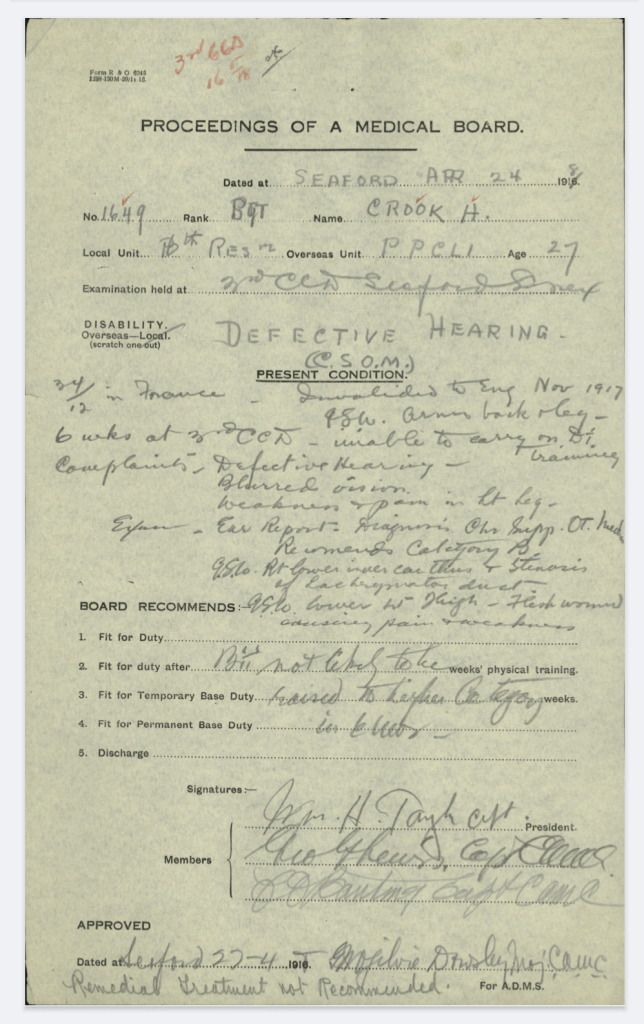 3rd CCD
16 5 18
Form R & O 6346
PROCEEDINGS OF A MEDICAL BOARD.
Dated at SEAFORD APR 24 1918.
No. 1649 Rank Name CROOK H.
Local Unit Res Overseas Unit PPCLI Age 27
Examination held at 3rd CCD Seaford Sussex
DISABILITY.
Overseas—Local.
(scratch one out)
DEFECTIVE HEARING -
(C.S.O.M.)
PRESENT CONDITION.
34/12 in France - Invalided to Eng Nov 1917
G.S.W. arms back & leg -
6 wks at 3rd CCD - unable to carry on P.T.
training
Complaints - Defective Hearing -
Blurred vision.
Weakness & pain in Lt leg -
Exam - Ear Report - Diagnosis Chr Supp. Ot. Med
Recomends Category B
G.S.W. Rt lower inner canthus & Stenosis
of Lachrymator duct
BOARD RECOMMENDS:- G.S.W. lower Thigh - Flesh wound
causing pain & weakness
1. Fit for Duty
2. Fit for duty after not likely to be weeks' physical training.
3. Fit for Temporary Base Duty raised to higher Category weeks.
4. Fit for Permanent Base Duty in 6 mos -
5. Discharge
Signatures:—
Wm. H. Capt. President.
Members
Capt CAMC
Capt CAMC
APPROVED
Dated at Seaford 27-4 1918. Ogilvie Maj. CAMC
Remedial Treatment not Recommended. For A.D.M.S.